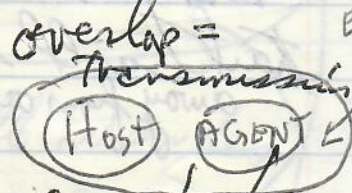 overlap =
Transmission
Host AGENT